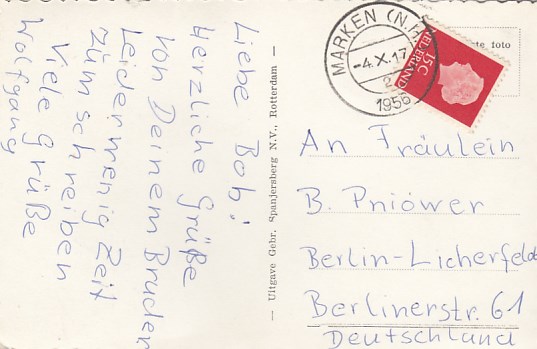 Liebe Bob!
Herzliche Grüße
von Deinem Bruder
Leider wenig Zeit
zum schreiben
Viele Grüße
Wolfgang
— Uitgave Gebr. Spanjersberg N.V., Rotterdam —
MARKEN (N.H.)
-4.X.17
1956
NEDERLAND
15c
te foto
An Fräulein
B. Pniower
Berlin-Licherfelde
Berlinerstr. 61
Deutschland